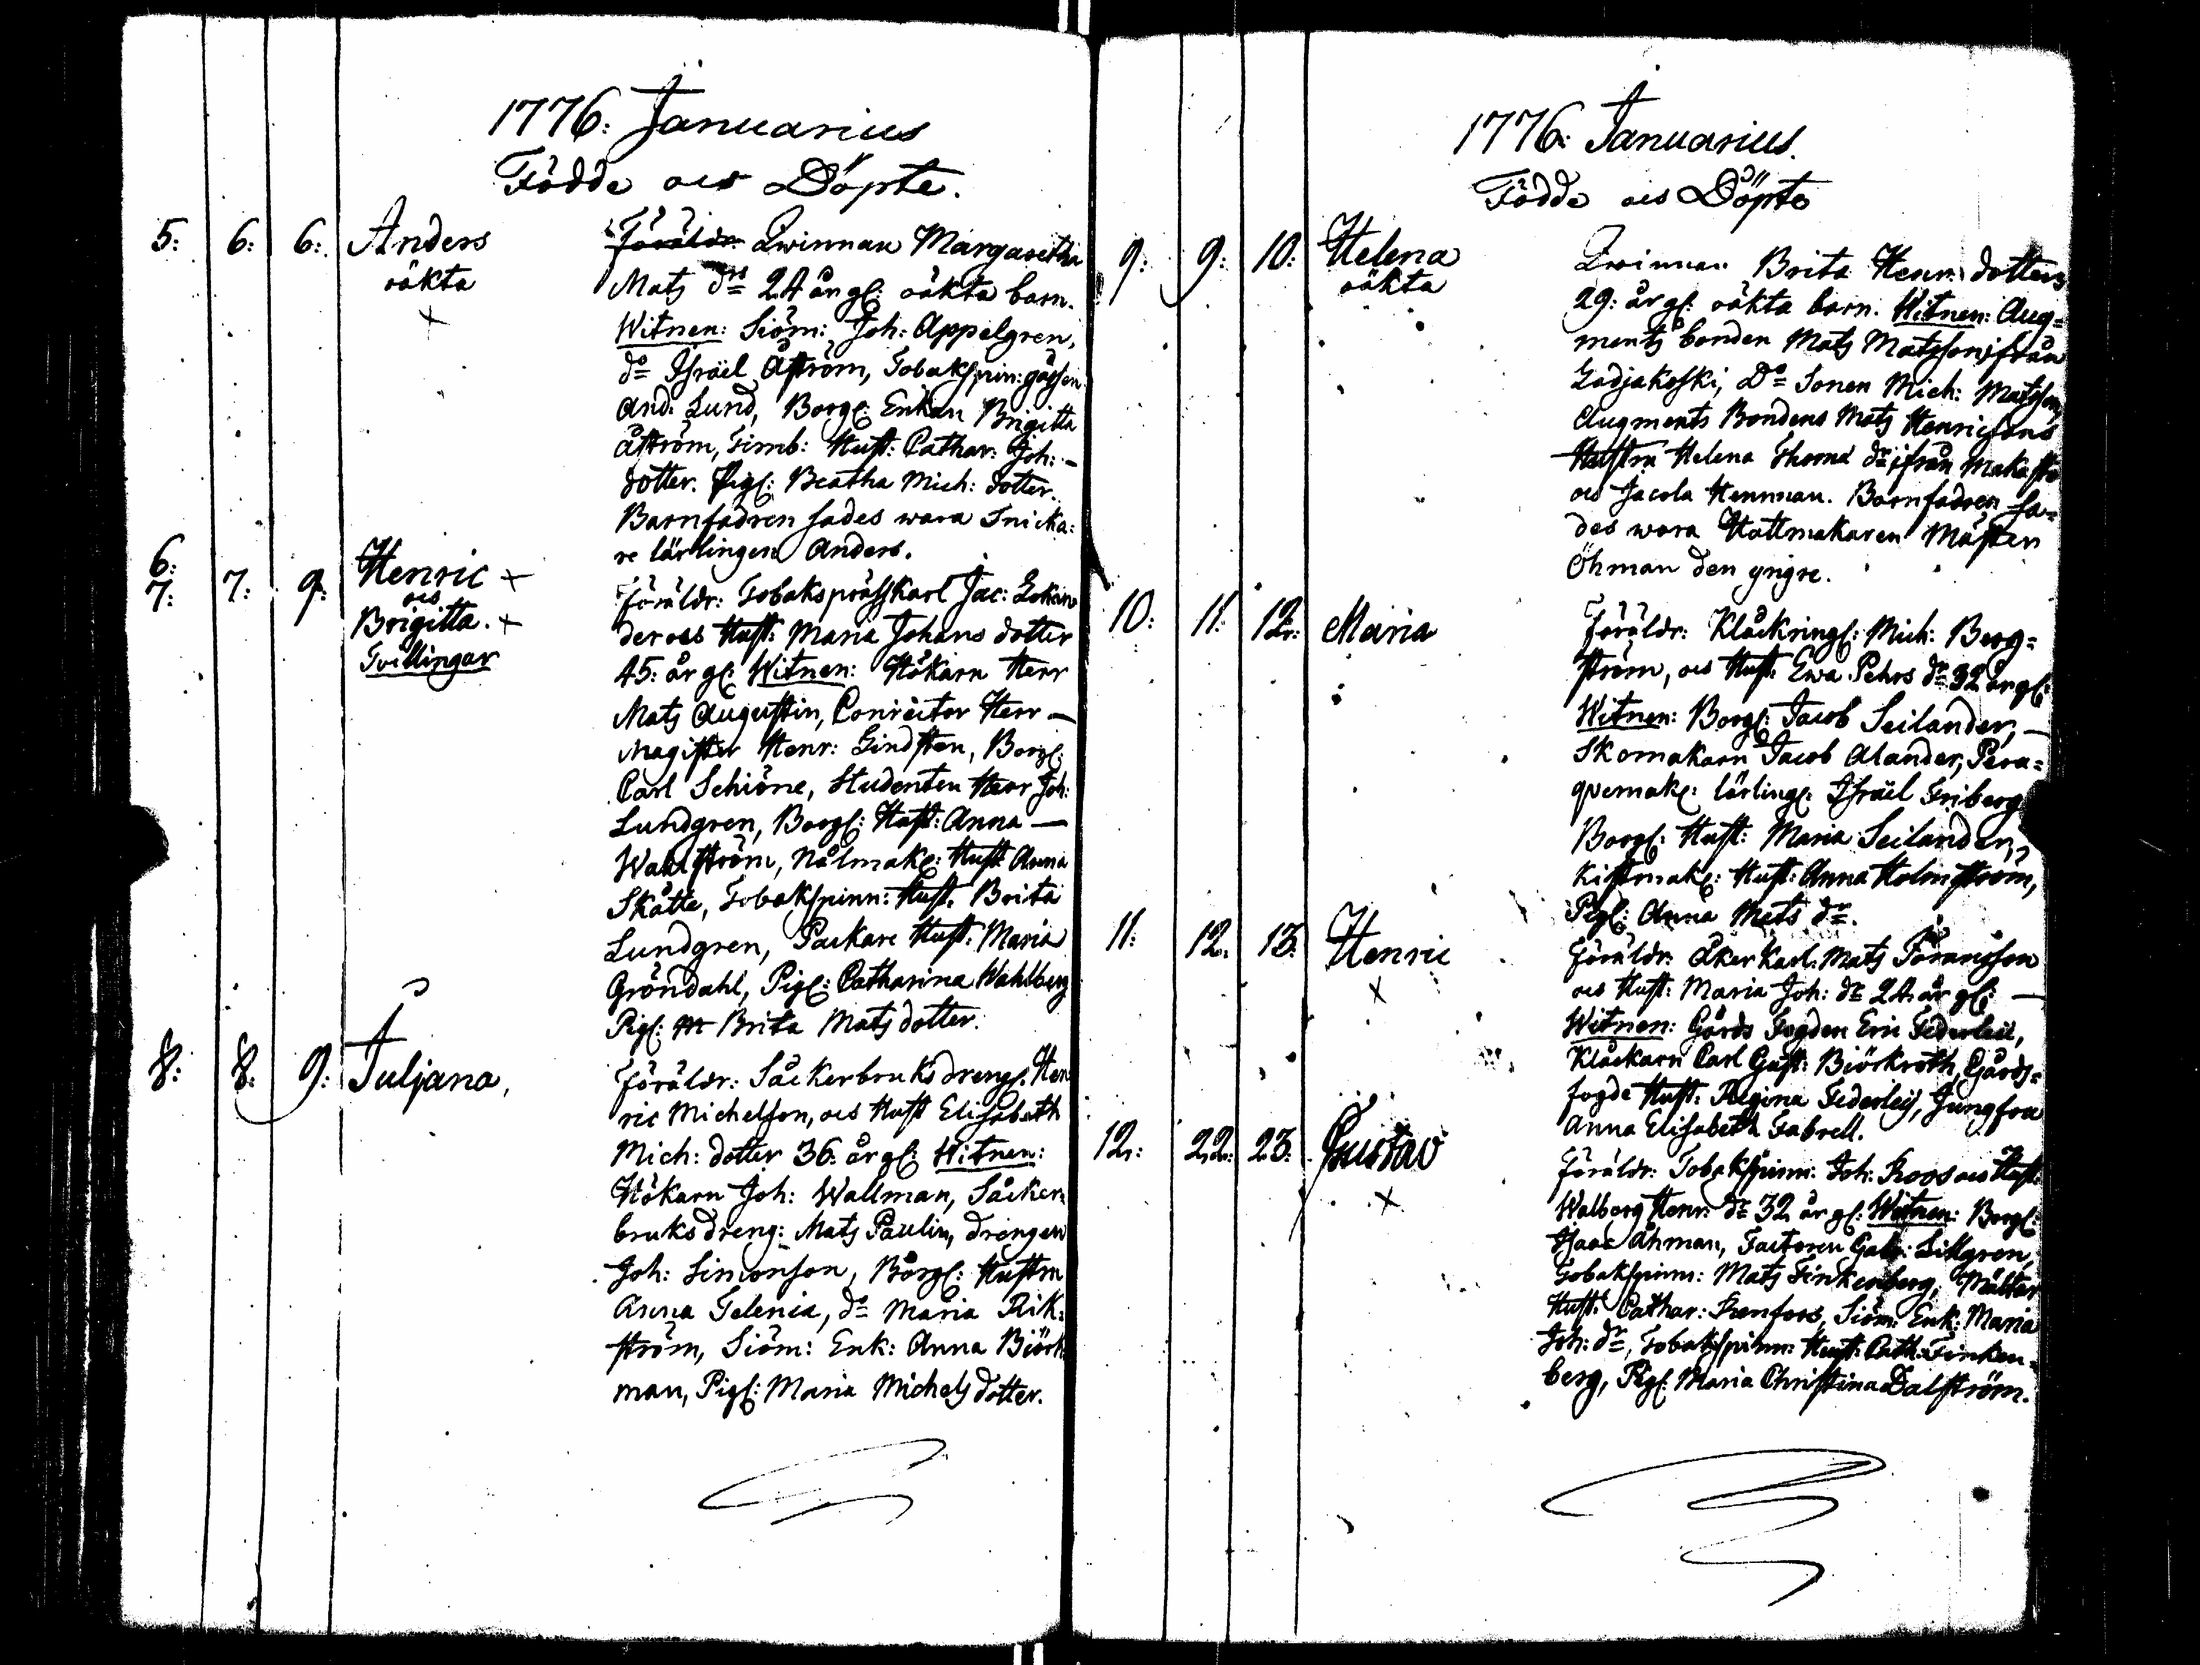 1776: Januarius
Födde och Döpte.
5: 6: 6: Anders
oäkta
Föräldr: Qwinnan Margaretha
Mats drs 24 år gl: oäkta barn.
Witnen: Siöm: Joh: Appelgren,
do Israël Åström, Tobakspin: gåssen
And: Lund, Borgl: Enkan Brigitta
Åström, Timb: Hust: Cathar: Joh: —
dotter. Pigl: Beatha Mich: dotter.
Barnfadren sades wara Snicka=
re lärlingen Anders.
6:
7: 7: 9: Henric +
och
Brigitta. +
Tvillingar
föräldr: Tobaksprässkarl Jac:
der och Hust: Maria Johans dotter
45: år gl: Witnen: Hökarn Herr
Mats Augustin, Conrector Herr —
Magister Henr: Lindsten, Borgl:
Carl Schiöne, Studenten Herr Joh:
Lundgren, Borgl: Hust: Anna —
Wahlström, Nålmak: Hust: Anna
Skåtte, Tobakspinn: Hust: Brita
Lundgren, Packare Hust: Maria
Gröndahl, Pigl: Catharina Wahlberg
Pigl: Brita Mats dotter.
8: 8: 9: Juljana,
föräldr: Såckerbruks drengl: Hen
ric Michelson, och Hust Elisabeth
Mich: dotter 36: år gl: Witnen:
Hökarn Joh: Wallman, Såcker=
bruks dreng: Mats Paulin, drengen
Joh: Simonson, Borgl: Hustru
Anna Telenia, do Maria Rik=
ström, Siöm: Enk: Anna Biörk
man, Pigl: Maria Michels dotter.
1776: Januarius.
Födde och Döpte
9: 9: 10: Helena
oäkta
Qwinnan Brita Henr: dotters
29: år gl: oäkta barn. Witnen: Aug=
ments bonden Mats Matsson, ifrån
Ladjakoski, Do Sonen Mich: Matsson,
Augments Bondens Mats Henricsons
Hustru Helena Thoma dr ifrån
och Jacola Hemman. Barnfadren sa=
des wara Hattmakaren Mästen
Öhman den yngre.
10: 11: 12: Maria
föräldr: Klåckringl: Mich: Berg=
ström, och Hust: Ewa Pehrs dr 32 år gl:
Witnen: Borgl: Jacob Seilander, —
Skomakarn Jacob Alander, Peru=
quemak: lärlingl: Israël Friberg
Borgl: Hust: Maria Seilander,
Kistmak: Hust: Anna Holmström,
Pigl: Anna Mats dr.
11: 12. 13: Henric
föräldr: Åkerkarl: Mats Göransson
och Hust: Maria Joh: dr 24 år gl: —
Witnen: Gårds Fogden Eric Federleij,
Klåckarn Carl Gust: Biörkroth, Gårds=
fogde Hust: Regina Federleij, Jungfru
Anna Elisabeth Fabrell.
12: 22: 23: Gustav
föräldr: Tobakspinn: Joh: Roos och Hust:
Walborg Henr: dr 32 år gl: Witnen: Borgl:
Isaac Åhman, Factoren Gabr: Sillgren,
Tobakspinn: Mats Finkenberg, Mältar
Hust: Cathar: Renfors, Siöm: Enk: Maria
Joh: dr, Tobakspinn: Hust: Cath: Finken=
berg, Pigl: Maria Christina Dalström.